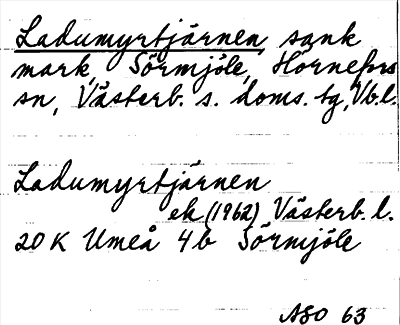 Ladumyrtjärnen, sank
mark, Sörmjöle, Hörnefors
sn, Västerb. s. doms. tg, Vb.l.
Ladumyrtjärnen
ek (1962) Västerb. l.
20 K Umeå 4b Sörmjöle
ASO 63